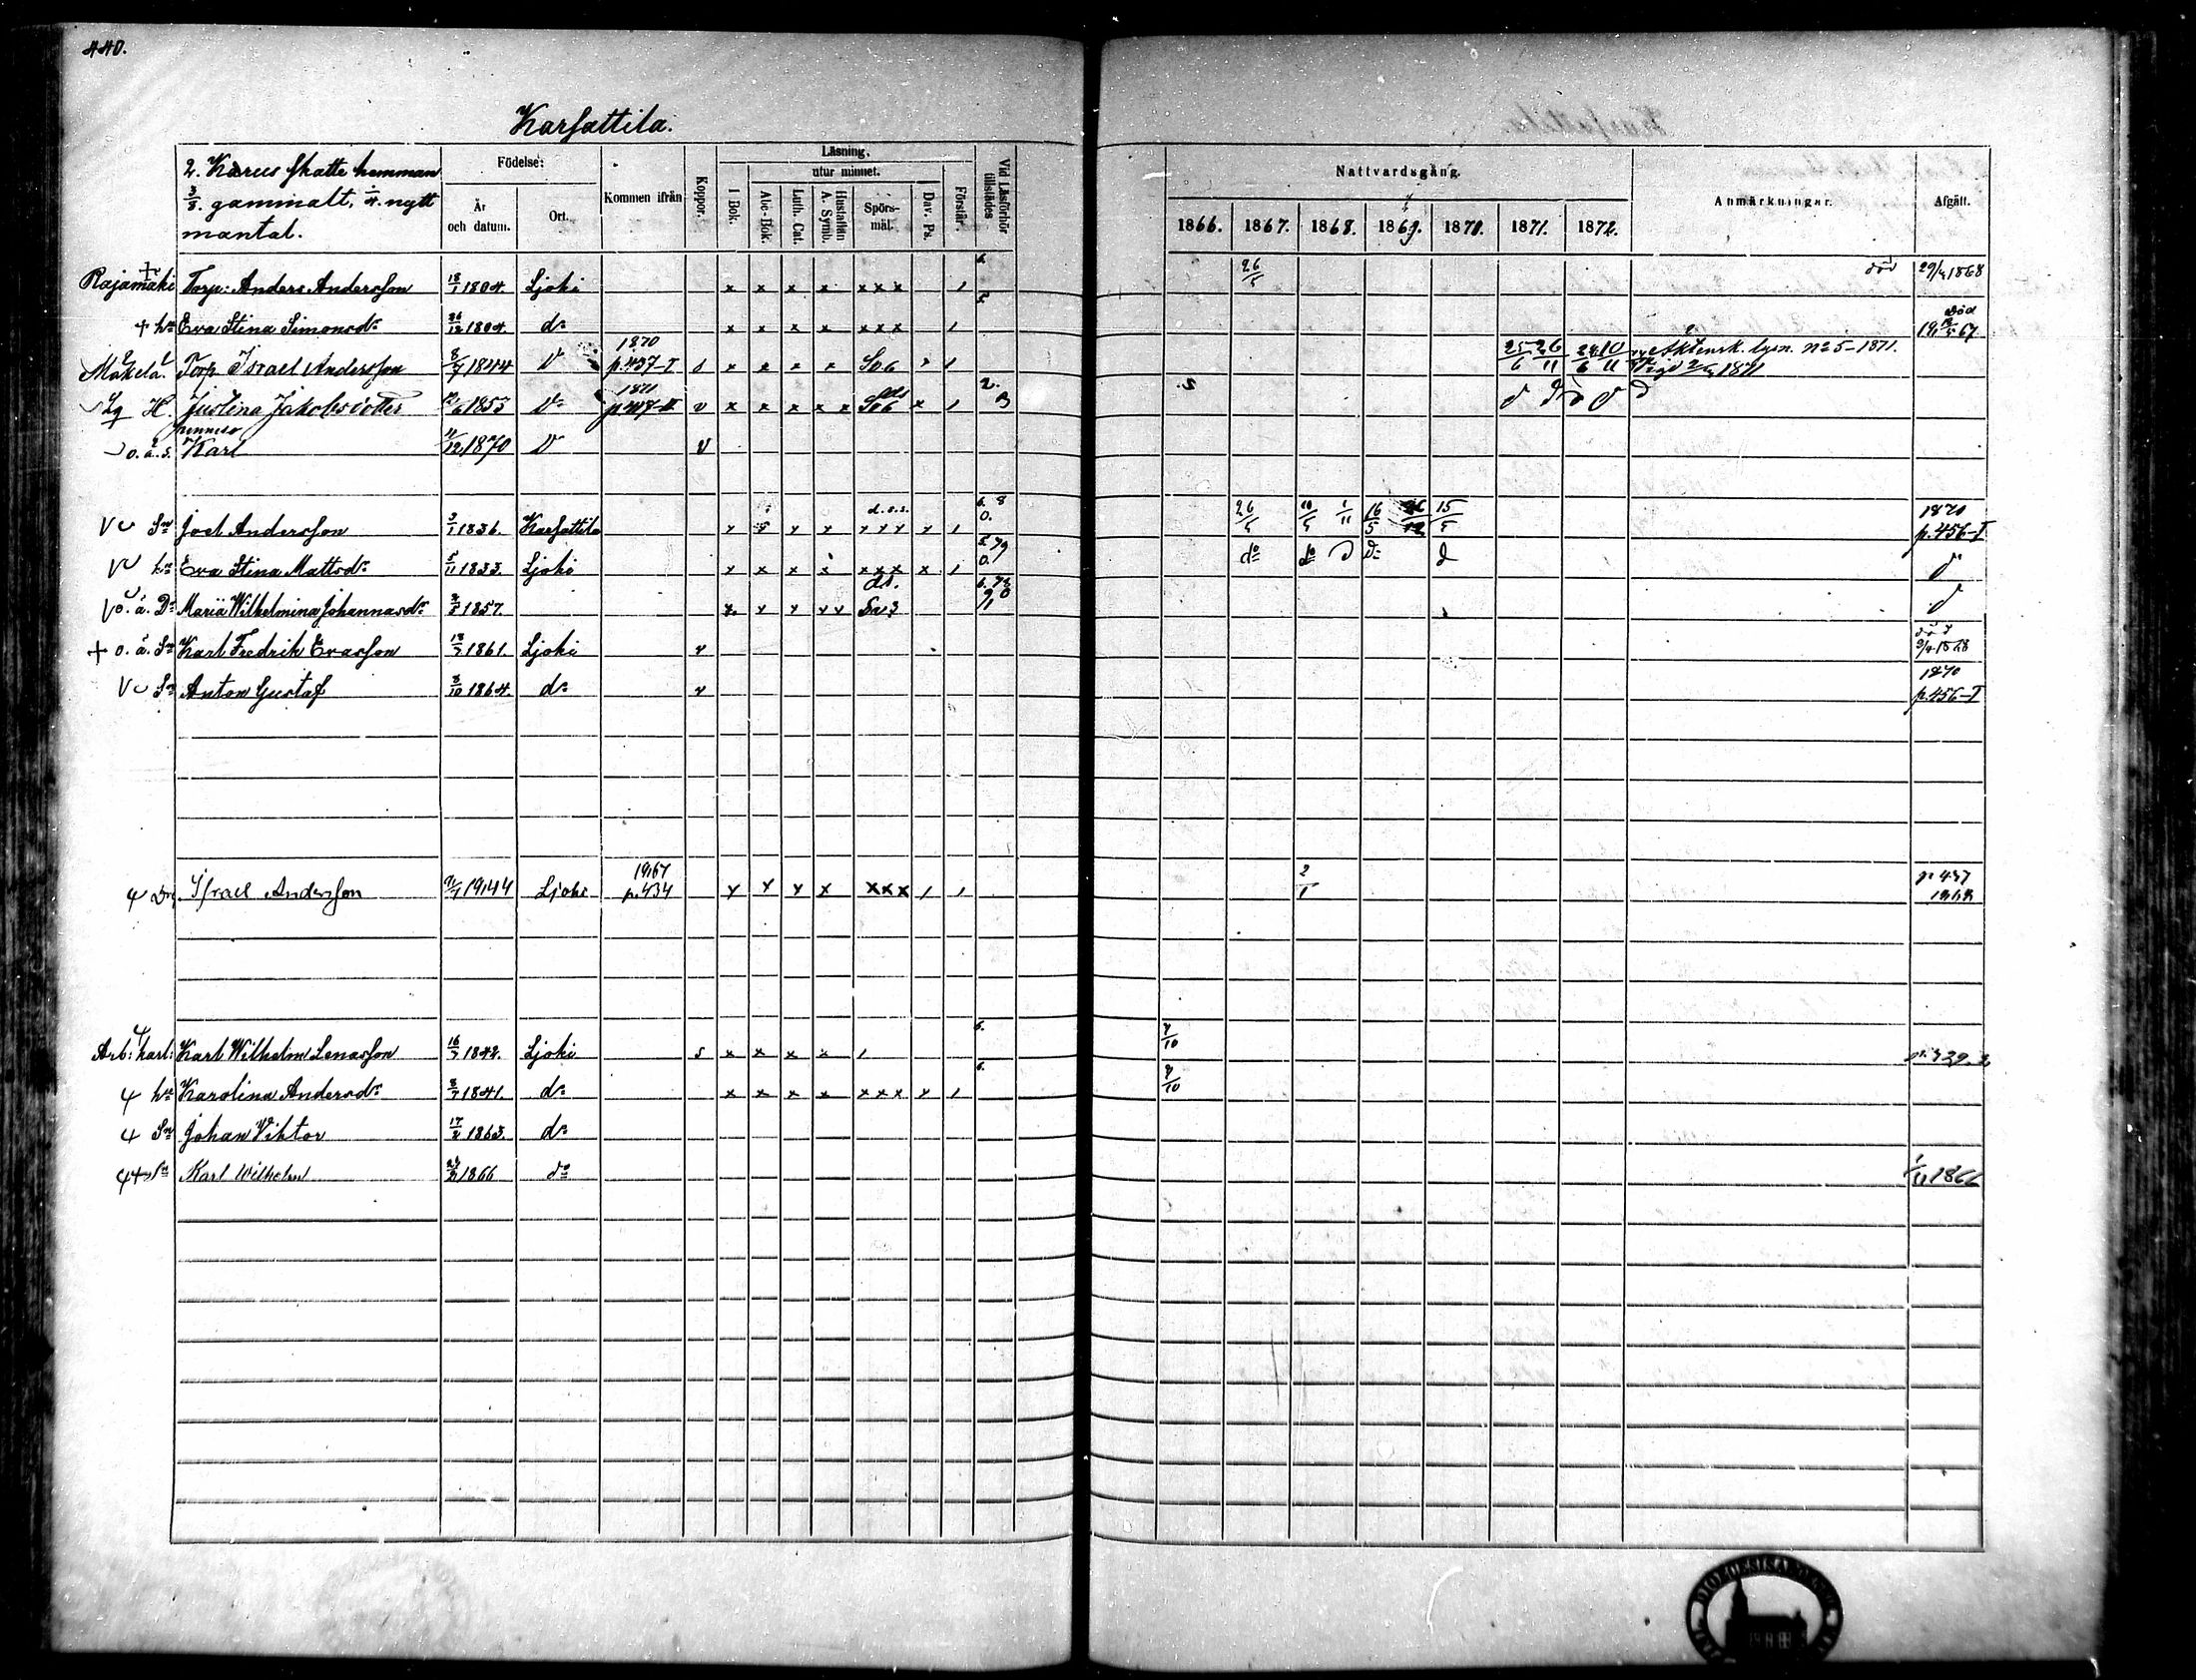 440.
Karsattila.
2. Kareus skatte hemman
3/8. gammalt, 1/4. nytt
mantal.
Födelse:
År och datum.
Ort.
Kommen ifrån
Koppor.
Läsning.
utur minnet.
I Bok.
Abc-Bok.
Luth. Cat.
Hustaflan A. Symb.
Spörsmål.
Dav. Ps.
Förstår.
Vid Läsförhör tillstädes
Nattvardsgång.
1866. 1867. 1868. 1869. 1870. 1871. 1872.
Anmärkningar.
Afgått.
Rajamäki + Torp: Anders Andersson 18/1 1804. Ljoki x x x x xxx 1 26/5 död 29/4 1868
+ hu Eva Stina Simonsdr 26/12 1804. do x x x x xxx 1 död 19/5 67.
Mäkelä. Torp Israel Andersson 8/7 1844 D 1870 p. 437-I s x x x x So6 x 1 25/6 26/11 24/6 10/11 Äktensk. lysn. No 5-1871. Vigd 1871
H. Justina Jakobsdotter 1853 Do 1871 v x x x x x So6 x 1 2. .s
hennes
o. ä. S. Karl 11/12 1870 D v
Sn Joel Andersson 3/1 1836. Karsattila 26/5 10/5 1/11 16/5 15/5 1870 p. 456-I
hu Eva Stina Mattsdr 5/11 1833. Ljoki x x x x xxx x 1 do do D Do D
o. ä. Dr Maria Wilhelmina Johannasdr 1857.
+ o. ä. Sn Karl Fredrik Evasson 18/7 1861. Ljoki v död 9/4 1868
Sn Anton Gustaf 8/10 1864. do v 1870 p. 456-I
Dr. Israel Andersson 1844 Ljoki 1867 p. 434 x x x x xxx 1 1 2/1 p 437 1868
Arb: karl: Karl Wilhelm Lenasson 16/7 1842. Ljoki s x x x x 1 6. 7/10
hu Karolina Andersdr 8/7 1841. do x x x x xxx x 1 6. 7/10
Sn Johan Viktor 17/2 1863. do
+ Sn Karl Wilhelm 1866 do 1/11 1866